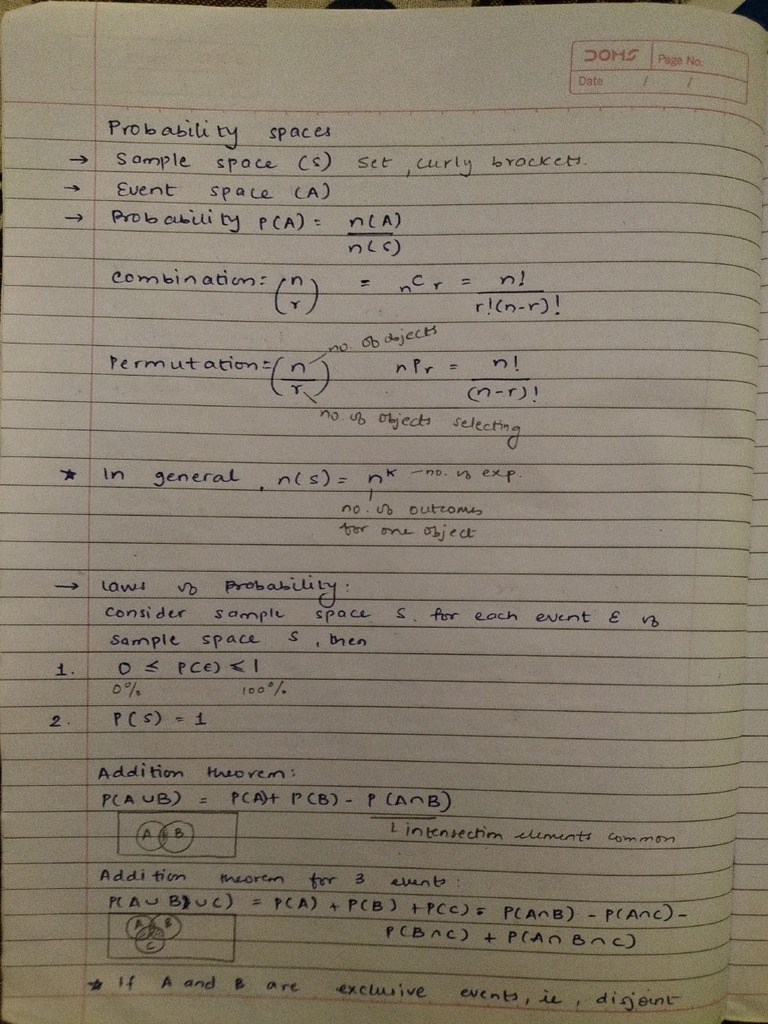 DOMS
Page No.
Date / /
Probability spaces
→ Sample space (S) set, curly brackets.
→ Event space (A)
→ Probability P(A) = n(A)/n(S)
Combination: (n r) = nCr = n!/r!(n-r)!
no. of objects
Permutation = (n/r) nPr = n!/(n-r)!
no. of objects selecting
* In general, n(S) = n^k – no. of exp.
no. of outcomes
for one object
→ Laws of Probability:
consider sample space S. for each event E of
sample space S, then
1. 0 ≤ P(E) ≤ 1
0% 100%
2. P(S) = 1
Addition theorem:
P(A∪B) = P(A)+ P(B) - P(A∩B)
A B
intensection elements common
Addition theorem for 3 events:
P(A∪B)∪C) = P(A) + P(B) + P(C) = P(A∩B) - P(A∩C) -
P(B∩C) + P(A∩B∩C)
A B
C
* If A and B are exclusive events, ie, disjoint